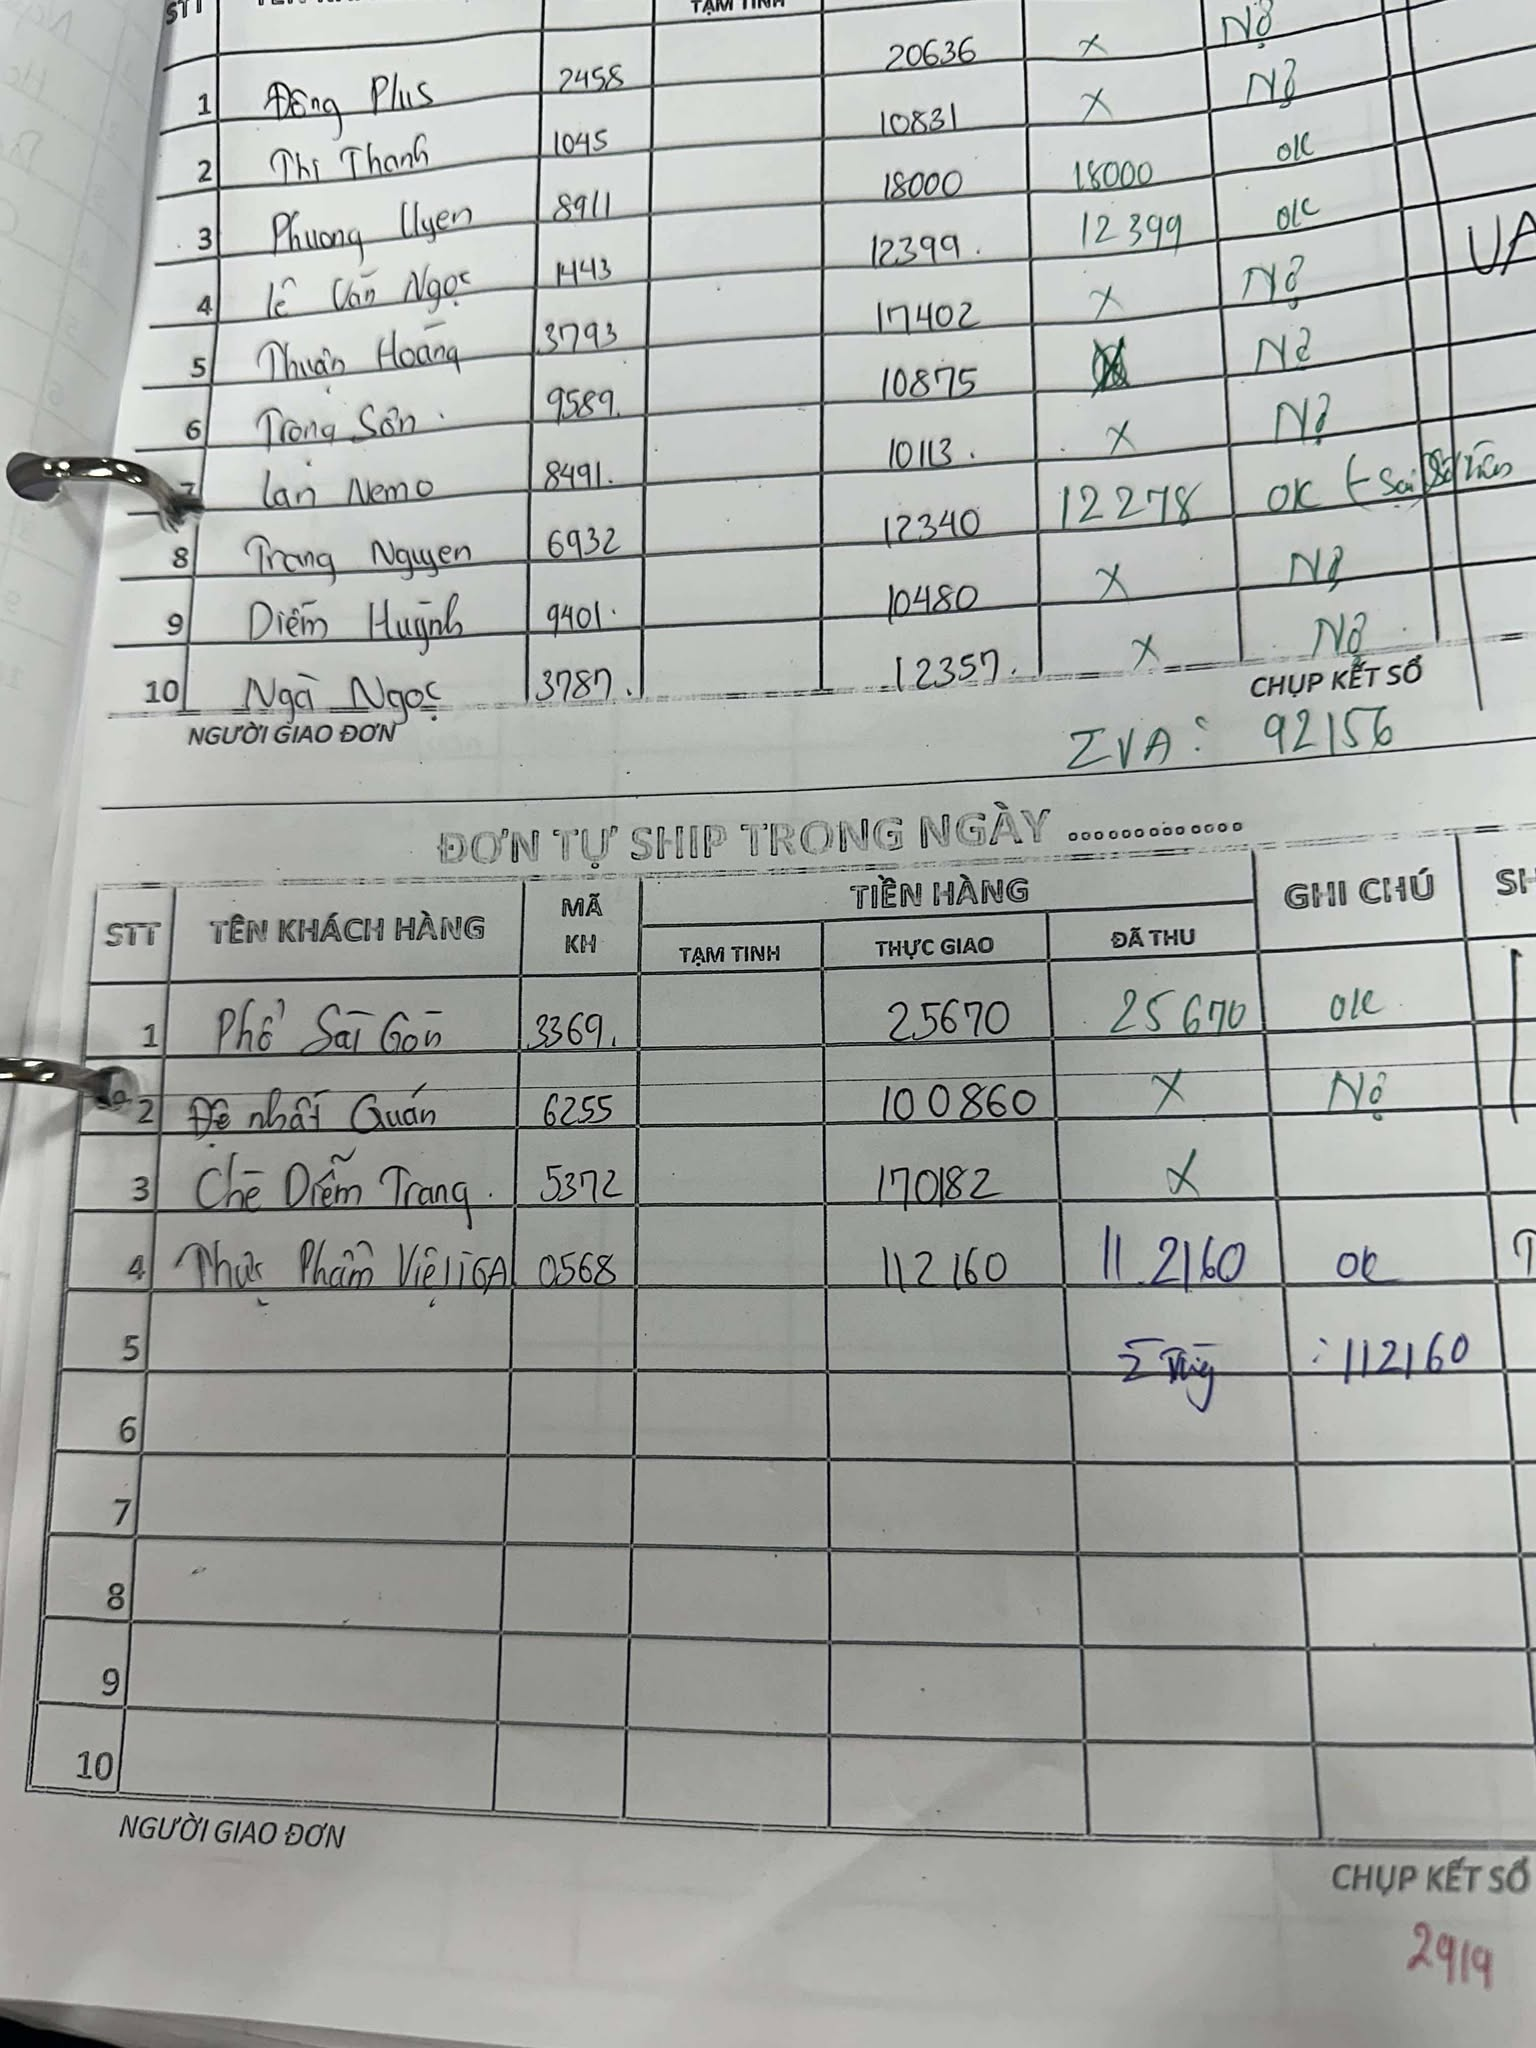 STT TÊN KHÁCH TẠM TINH
1 Đông Plus 2458 20636 x Nợ
2 Thi Thanh 1045 10831 x Nợ
3 Phuong Uyen 8911 18000 18000 ok
4 lê Văn Ngọc 1443 12399. 12399 ok
5 Thuận Hoàng 3793 17402 x Nợ
6 Trọng Sơn. 9589. 10875 Nợ
7 Lan Nemo 8491. 10113. x Nợ
8 Trang Nguyen 6932 12340 12278 OK
9 Diễm Huỳnh 9401. 10480 x Nợ
10 Ngà Ngọc 3787. 12357. x Nợ
NGƯỜI GIAO ĐƠN CHỤP KẾT SỔ
ΣVA: 92156
ĐƠN TỰ SHIP TRONG NGÀY .............
STT TÊN KHÁCH HÀNG MÃ KH TIỀN HÀNG GHI CHÚ SH
TẠM TINH THỰC GIAO ĐÃ THU
1 Phố Sài Gòn 3369. 25670 25670 ok
2 Đệ nhất Quán 6255 100860 x Nợ
3 Chè Diễm Trang. 5372 170182 x
4 Thực Phẩm Việt iGA 0568 112160 112160 ok T
5 Σ :112160
6
7
8
9
10
NGƯỜI GIAO ĐƠN
CHỤP KẾT SỔ
29/9